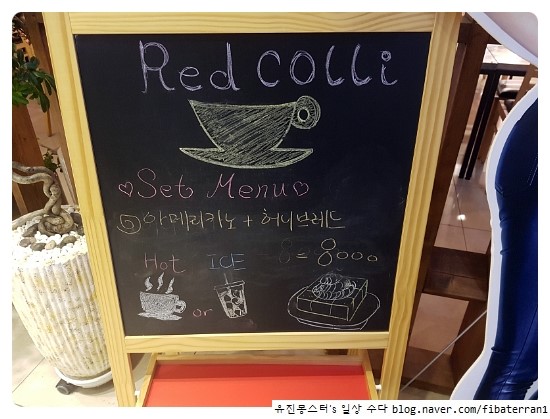 Red COLLi
♡Set Menu♡
아메리카노 + 허니브레드
Hot ICE = 8000
or
유진몽스터's 일상 수다 blog.naver.com/fibaterrani